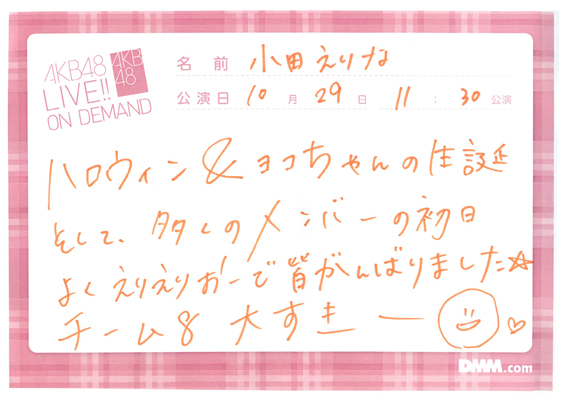 AKB48
LIVE!!
ON DEMAND
AKB
48
名前 小田えりな
公演日 10月29日 11:30公演
ハロウィン&ヨコちゃんの生誕
そして、多くのメンバーの初日
よくえりえりおーで皆がんばりました☆
チーム8 大すきー ♡
DMM.com